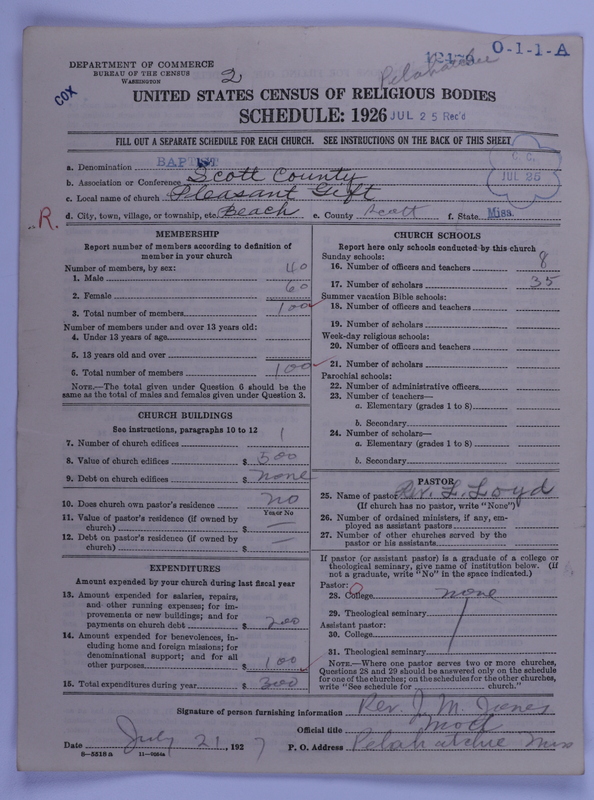 DEPARTMENT OF COMMERCE
BUREAU OF THE CENSUS
WASHINGTON
2
Pelahatchie
O-1-1-A
COX
UNITED STATES CENSUS OF RELIGIOUS BODIES
SCHEDULE: 1926 JUL 25 Rec'd
FILL OUT A SEPARATE SCHEDULE FOR EACH CHURCH. SEE INSTRUCTIONS ON THE BACK OF THIS SHEET
C. C.
JUL 26
a. Denomination BAPTIST
b. Association or Conference Scott County
c. Local name of church Pleasant Gift
R.
d. City, town, village, or township, etc. Beach e. County Scott f. State Miss.
MEMBERSHIP
Report number of members according to definition of
member in your church
Number of members, by sex:
1. Male 40
2. Female 60
3. Total number of members 100
Number of members under and over 13 years old:
4. Under 13 years of age
5. 13 years old and over
6. Total number of members 100
NOTE.—The total given under Question 6 should be the
same as the total of males and females given under Question 3.
CHURCH BUILDINGS
See instructions, paragraphs 10 to 12
7. Number of church edifices 1
8. Value of church edifices $ 500
9. Debt on church edifices $ none
10. Does church own pastor's residence no
Yes or No
11. Value of pastor's residence (if owned by
church) $ —
12. Debt on pastor's residence (if owned by
church) $ —
EXPENDITURES
Amount expended by your church during last fiscal year
13. Amount expended for salaries, repairs,
and other running expenses; for im-
provements or new buildings; and for
payments on church debt $ 200
14. Amount expended for benevolences, in-
cluding home and foreign missions; for
denominational support; and for all
other purposes $ 100
15. Total expenditures during year $ 300
CHURCH SCHOOLS
Report here only schools conducted by this church
Sunday schools:
16. Number of officers and teachers 8
17. Number of scholars 35
Summer vacation Bible schools:
18. Number of officers and teachers
19. Number of scholars
Week-day religious schools:
20. Number of officers and teachers
21. Number of scholars
Parochial schools:
22. Number of administrative officers
23. Number of teachers—
a. Elementary (grades 1 to 8)
b. Secondary
24. Number of scholars—
a. Elementary (grades 1 to 8)
b. Secondary
PASTOR
25. Name of pastor Rev. L. Loyd
(If church has no pastor, write "None")
26. Number of ordained ministers, if any, em-
ployed as assistant pastors
27. Number of other churches served by the
pastor or his assistants
If pastor (or assistant pastor) is a graduate of a college or
theological seminary, give name of institution below. (If
not a graduate, write "No" in the space indicated.)
Pastor:
28. College none
29. Theological seminary
Assistant pastor:
30. College
31. Theological seminary
NOTE.—Where one pastor serves two or more churches,
Questions 28 and 29 should be answered only on the schedule
for one of the churches; on the schedules for the other churches,
write "See schedule for church."
Signature of person furnishing information Rev. J. M. Jones
Official title
Date July 21, 1927 P. O. Address Pelahatchie Miss
8—5518a 11—9264a